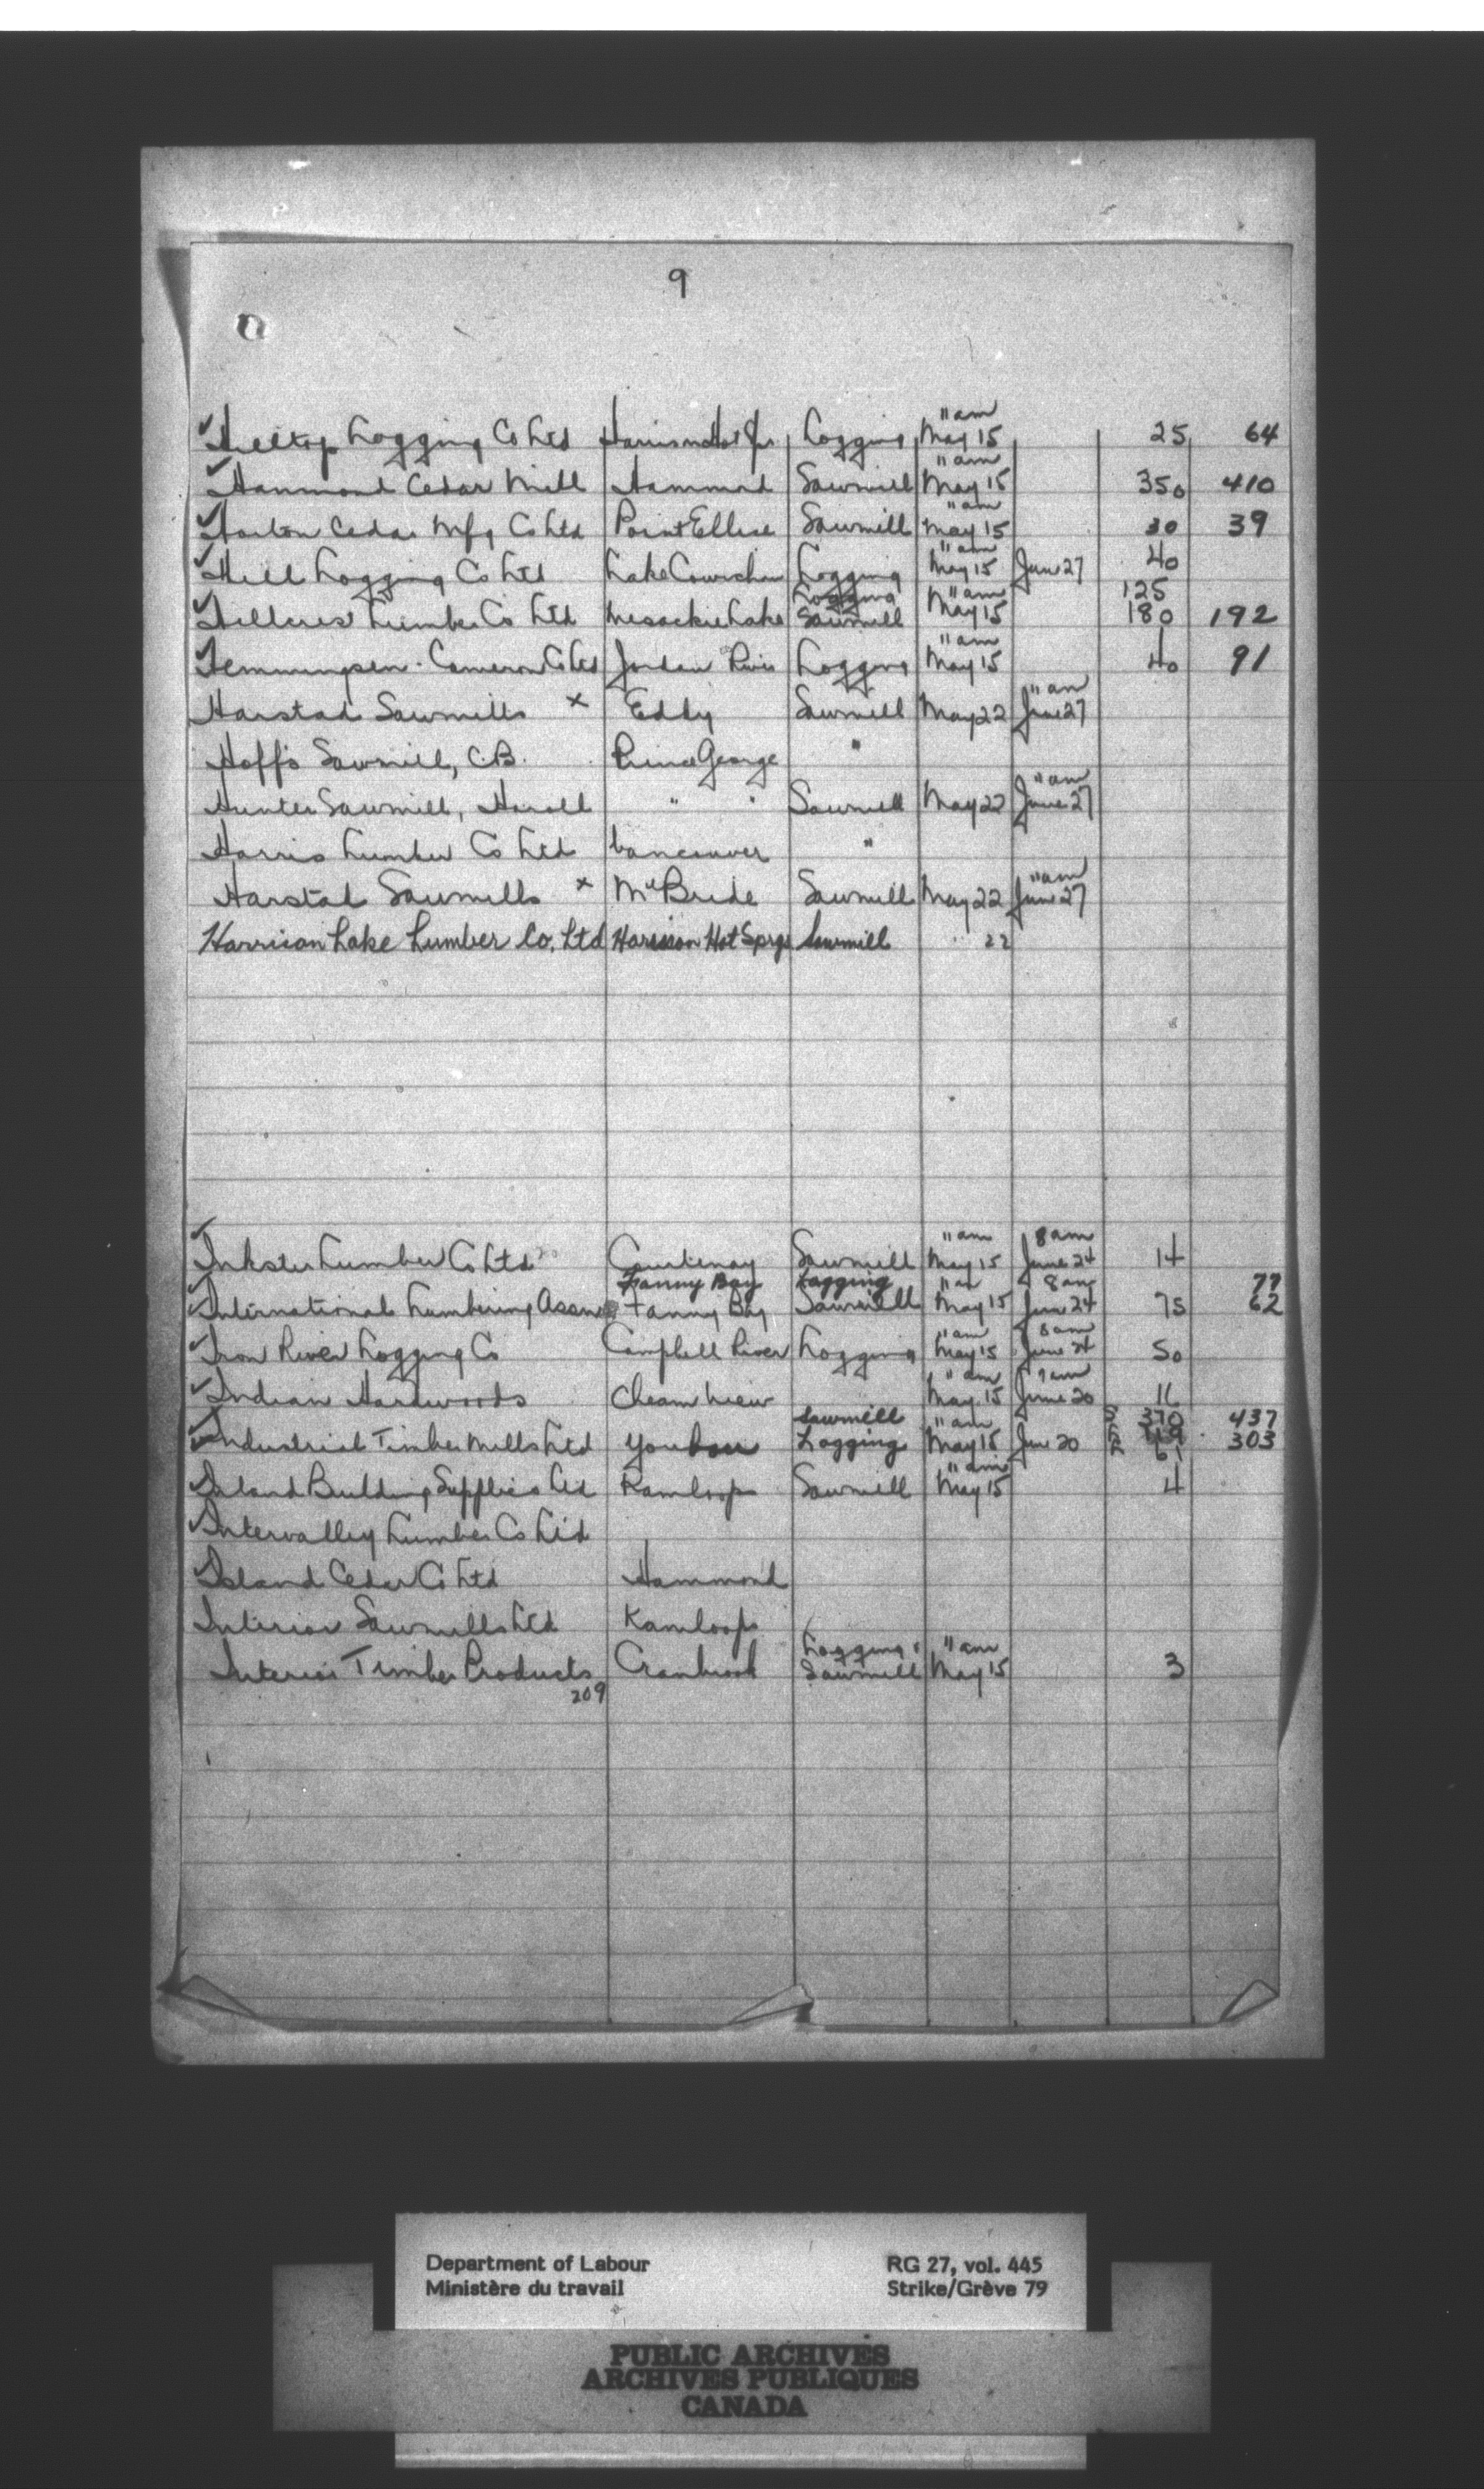 9
✓ Hilltop Logging Co Ltd Harrison Hot Spr Logging 11 am May 15 25 64
✓ Hammond Cedar Mill Hammond Sawmill 11 am May 15 350 410
✓ Horton Cedar Mfg Co Ltd Point Ellice Sawmill 11 am May 15 30 39
✓ Hill Logging Co Ltd Lake Cowichan Logging 11 am May 15 June 27 40
✓ Hillcrest Lumber Co Ltd Mesachie Lake Logging Sawmill 11 am May 15 125 180 192
✓ Hemmingsen-Cameron Co Ltd Jordan River Logging 11 am May 15 40 91
Harstad Sawmills x Eddy Sawmill May 22 11 am June 27
Hoff's Sawmill, C.B. Prince George "
Hunter Sawmill, Harold " " Sawmill May 22 11 am June 27
Harris Lumber Co Ltd Vancouver "
Harstad Sawmills x McBride Sawmill May 22 11 am June 27
Harrison Lake Lumber Co. Ltd Harrison Hot Sprgs Sawmill " 22
✓ Inkster Lumber Co Ltd Courtenay Sawmill 11 am May 15 8 am June 24 14
✓ International Lumbering Assn Fanny Bay Fanny Bay Logging Sawmill 11 am May 15 8 am June 24 75 77 62
✓ Iron River Logging Co Campbell River Logging 11 am May 15 8 am June 24 50
✓ Indian Hardwoods Cheam View 11 am May 15 June 20 16
✓ Industrial Timber Mills Ltd Youbou Sawmill Logging 11 am May 15 June 20 370 61 437 303
✓ Inland Building Supplies Ltd Kamloops Sawmill 11 am May 15 4
✓ Intervalley Lumber Co Ltd
✓ Island Cedar Co Ltd Hammond
Interior Sawmills Ltd Kamloops
Interior Timber Products Cranbrook Logging & Sawmill 11 am May 15 3
209
Department of Labour
Ministère du travail
RG 27, vol. 445
Strike/Grève 79
PUBLIC ARCHIVES
ARCHIVES PUBLIQUES
CANADA